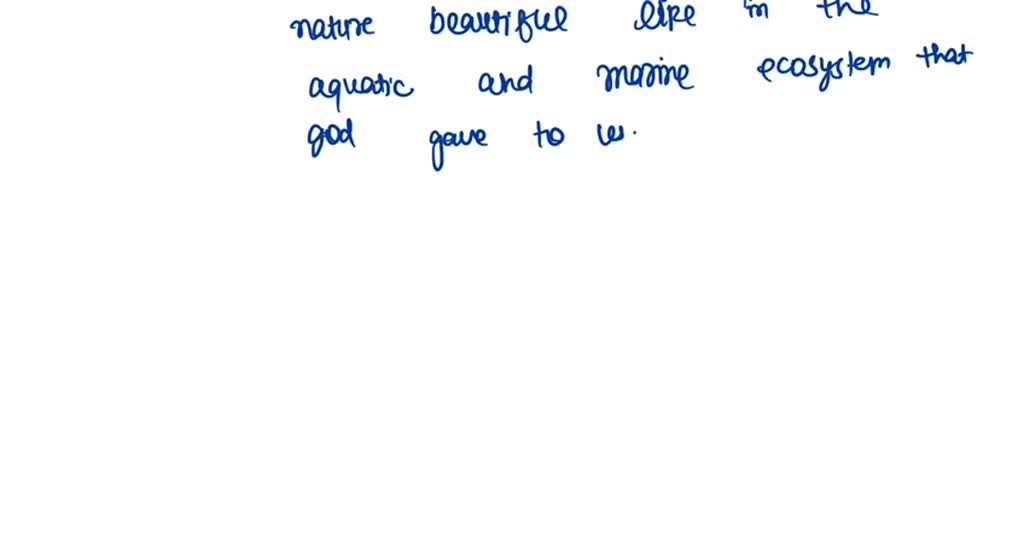 nature beautiful like in the
aquatic and marine ecosystem that
god gave to us.